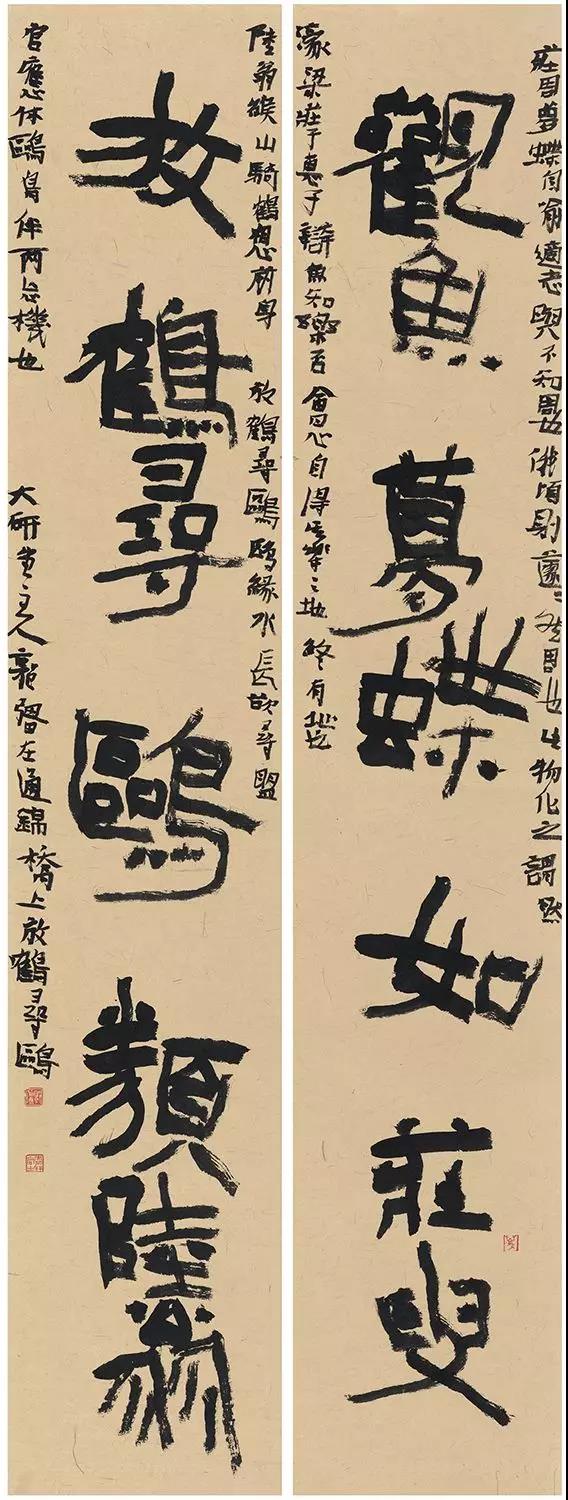 莊周夢蝶自喻適志與不知周也俄頃則蘧〻然周也此物化之謂然
觀魚夢蝶如莊叟
濠梁莊子惠子 魚知樂否會心自得 之地終有
陸翁緱山騎鶴想前身放鶴尋鷗鷗緣水長故尋盟
放鶴尋鷗類陸翁
官應休鷗鳥伴兩忘機也
大研堂主人郭 在通錦橋上放鶴尋鷗